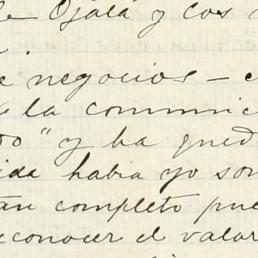 Ojalá y cos
.
negocios — e
la comunic
to" y ha qued
ida habia yo son
tan completo pue
econocer el valor